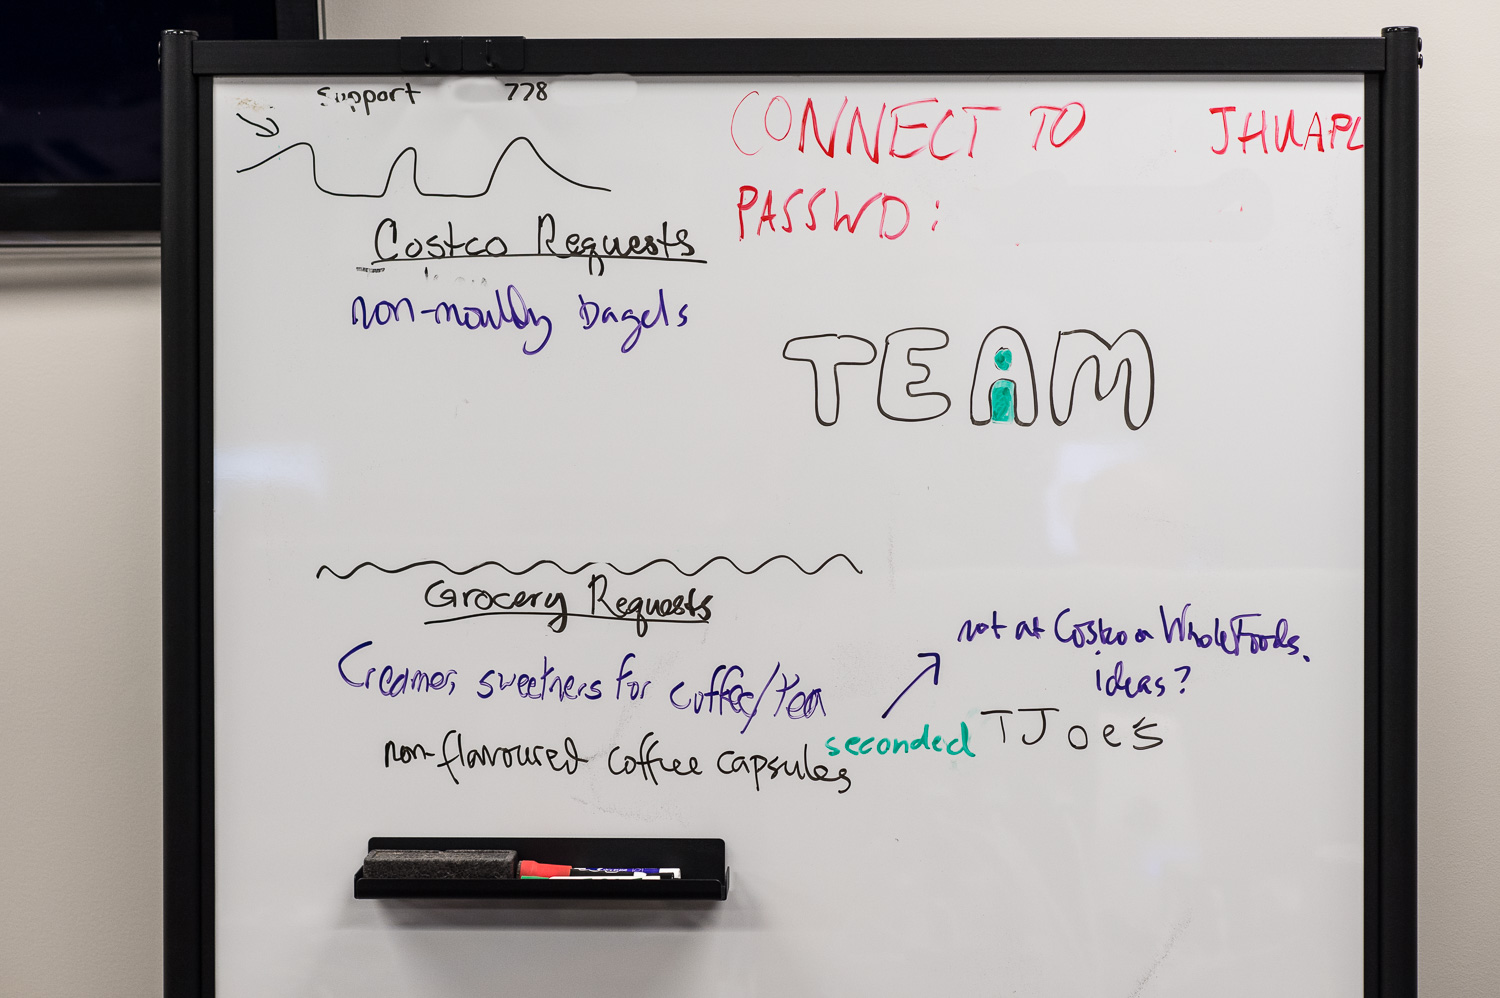 Support 778
CONNECT TO JHUAPL
PASSWD:
Costco Requests
non-mouldy bagels
TEAM
Grocery Requests
Creamer, sweetners for coffee/tea
not at Costco or WholeFoods.
ideas?
TJoes
non-flavoured coffee capsules
seconded